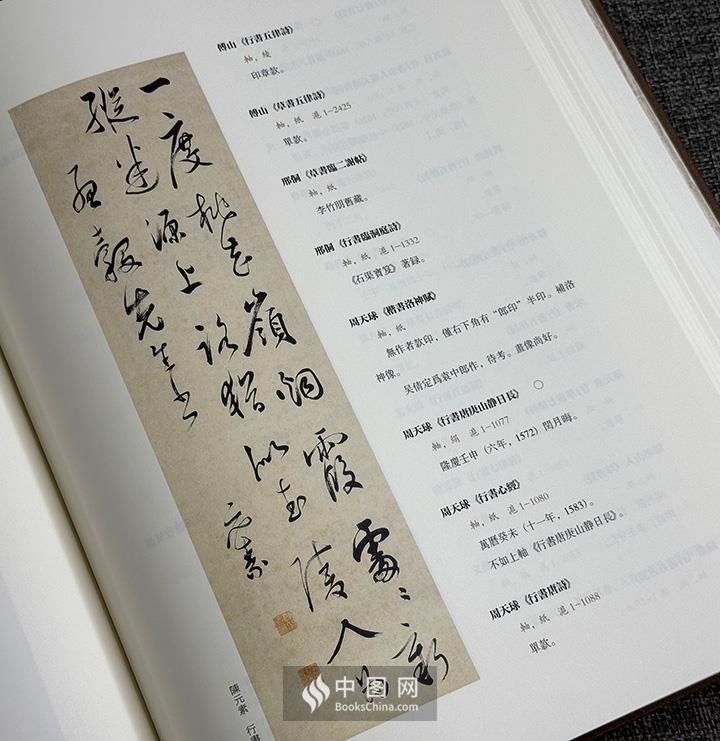 傅山《行書五律詩》
軸，綾
印章款。
傅山《草書五律詩》
軸，紙 滬1-2425
單款。
邢侗《草書臨二謝帖》
軸，紙
李竹朋舊藏。
邢侗《行書臨洞庭詩》
軸，紙 滬1-1332
《石渠寶笈》著録。
周天球《楷書洛神賦》
軸，紙
無作者款印，僅右下角有“郎印”半印。補洛
神像。
吴倩定爲袁中郎作，待考。畫像尚好。
周天球《行書唐庚山静日長》 ○
軸，絹 滬1-1077
隆慶壬申（六年，1572）閏月晦。
周天球《行書心經》
軸，紙 滬1-1080
萬曆癸未（十一年，1583）。
不如上軸《行書唐庚山静日長》。
周天球《行書唐詩》
軸，紙 滬1-1088
單款。
一度桃花嶺洞霞
源上路猶
先生
陳元素 行書
中图网
BooksChina.com